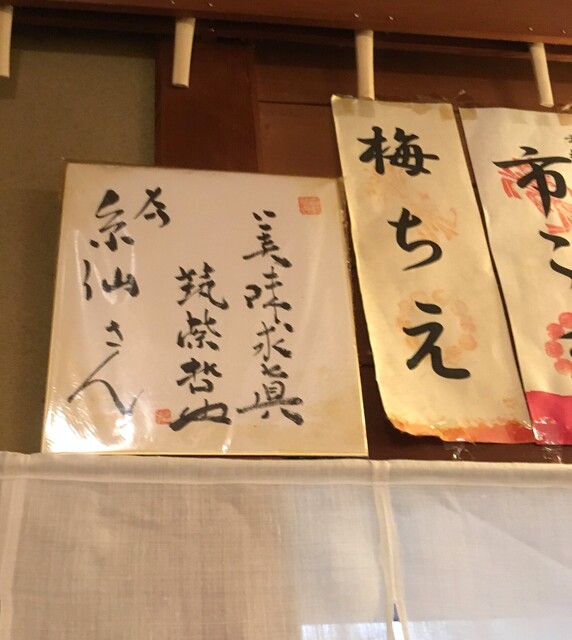 梅ちえ
市こ
美味求真
筑紫哲也
糸仙さん